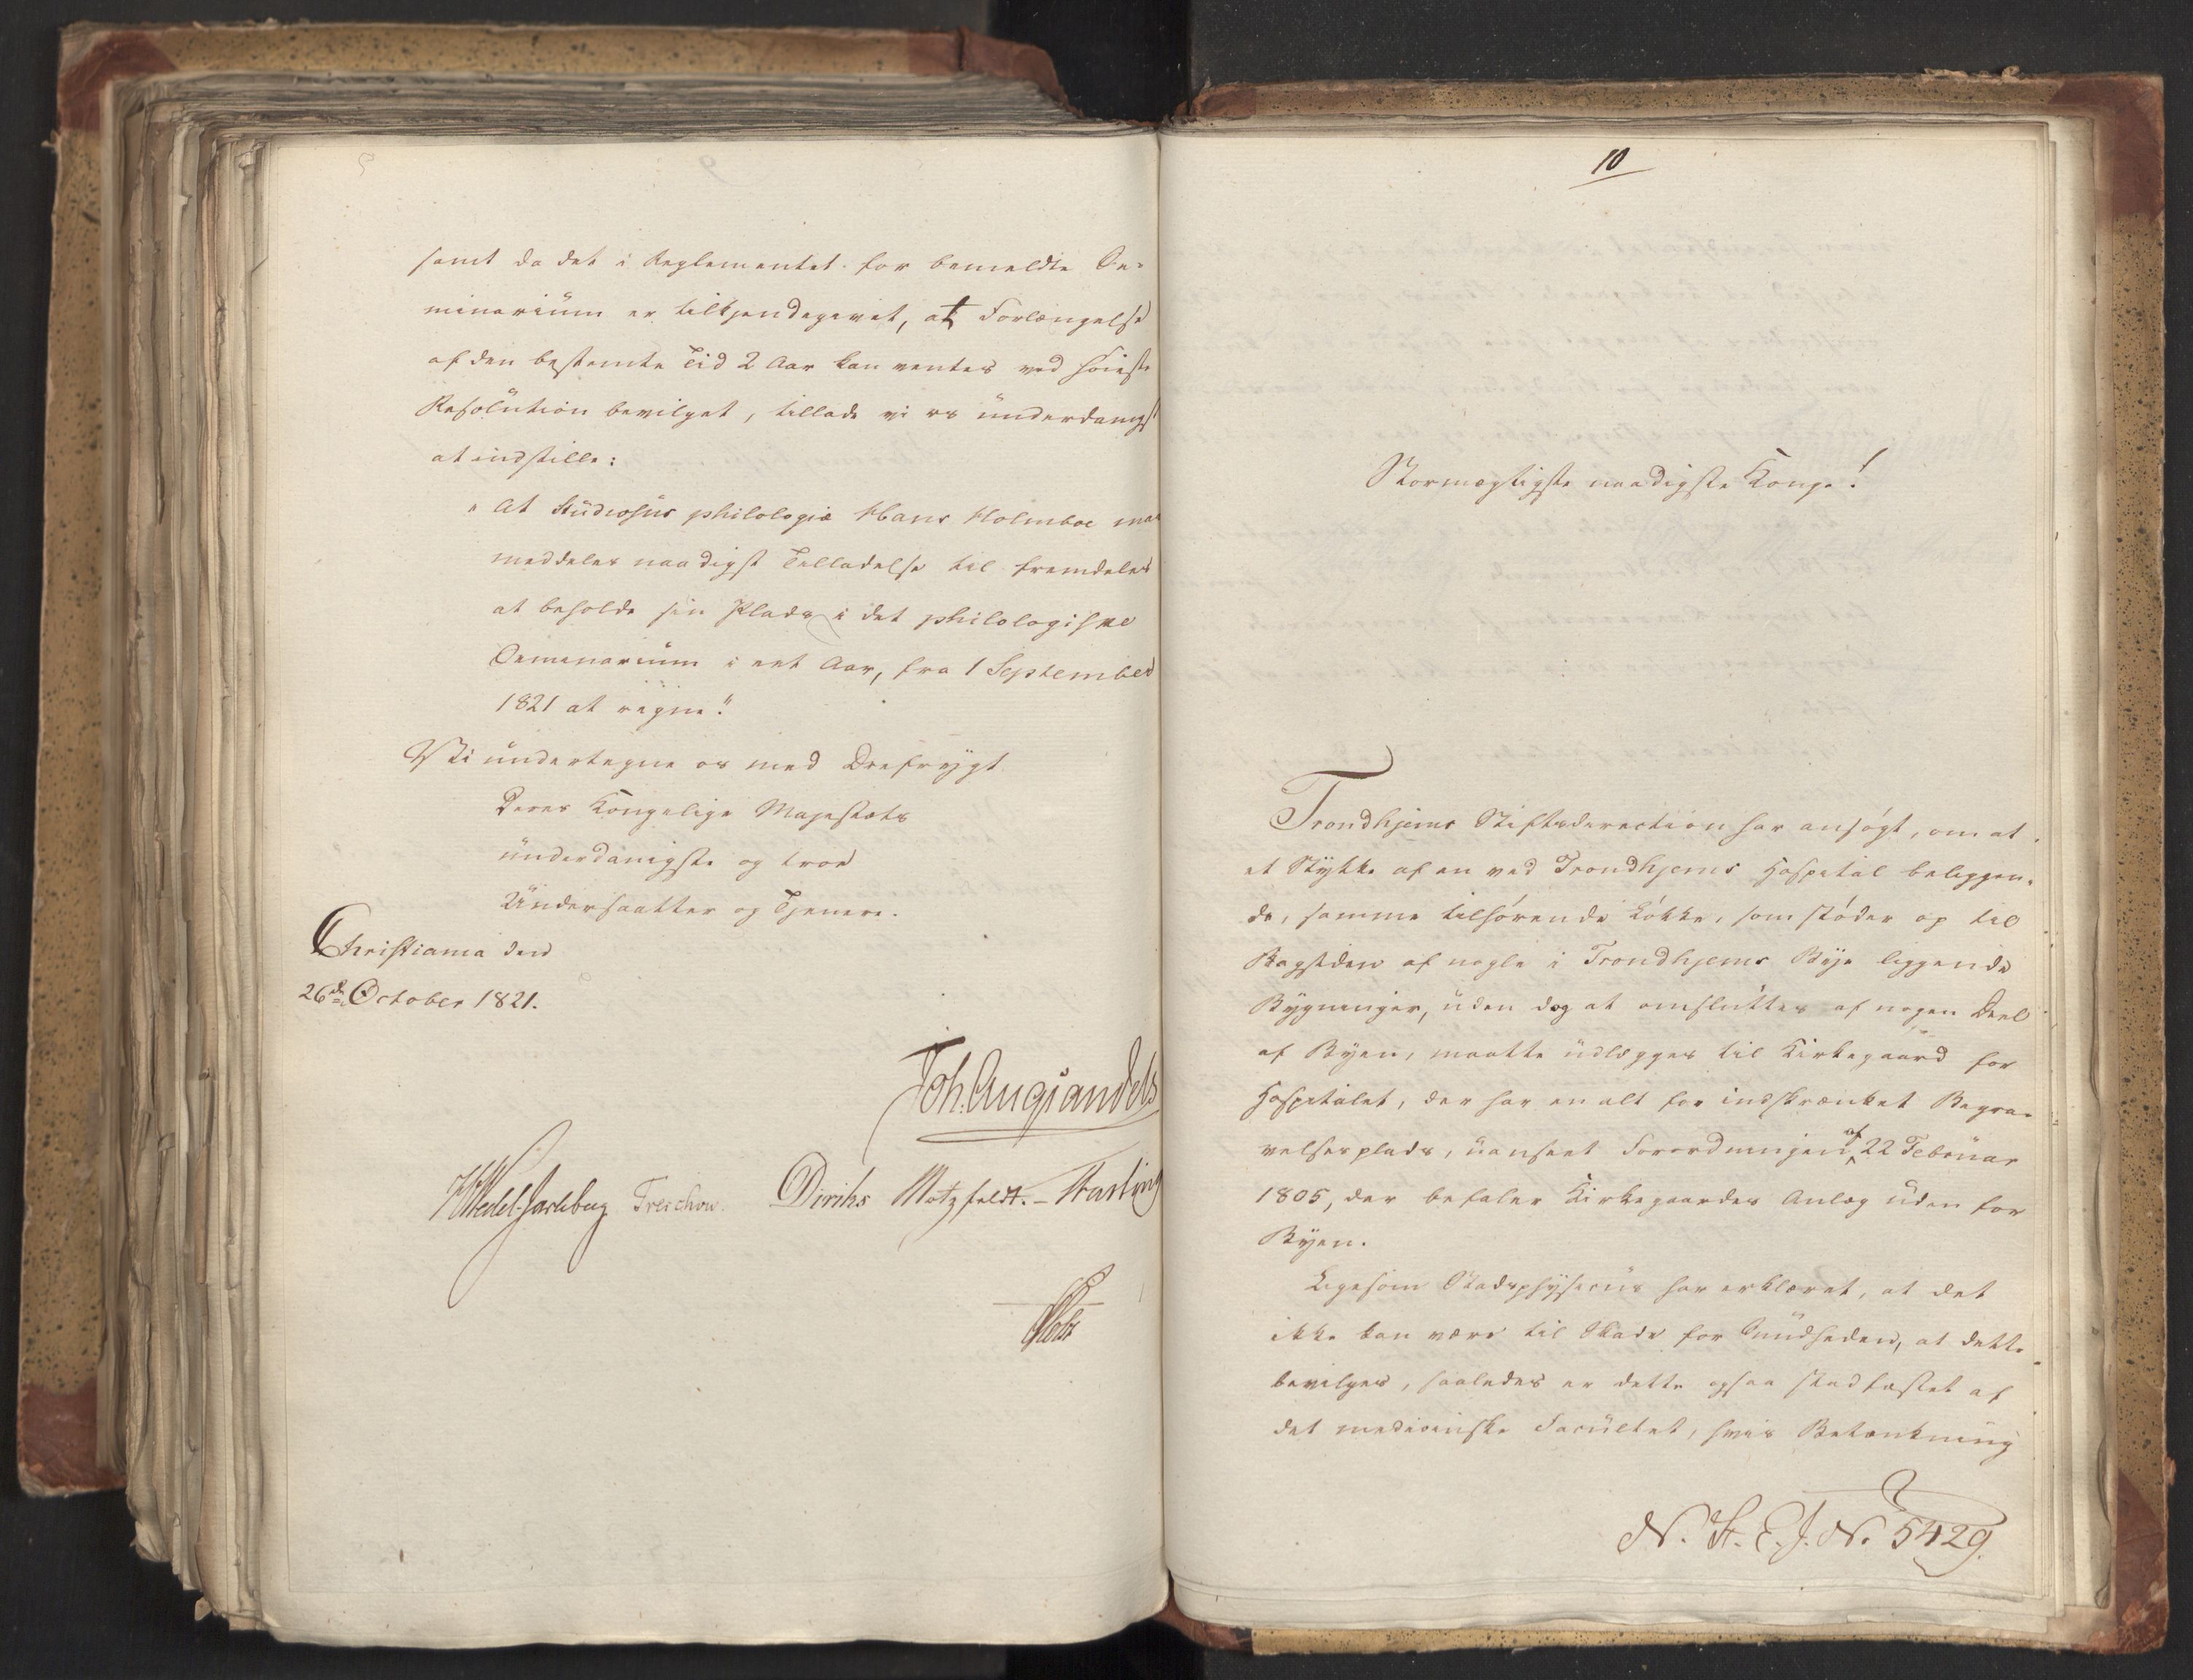 samt da det i Reglementet for bemeldte Se-
minarium er tilkjendegivet, at Forlængelse
af den bestemte Tid 2 Aar kan ventes ved høieste
Resolution bevilget, tillade vi os underdanigst
at indstille:
"At Studiosus philologiæ Hans Holmboe maa
meddeles naadigst Tilladelse til fremdeles
at beholde sin Plads i det philologiske
Seminarium i eet Aar, fra 1 September
1821 at regne."
Vi undertegne os med Ærefrygt
Deres Kongelige Majestæts
underdanigste og troe
Undersaatter og Tjenere.
Christiania den
26de October 1821.
Joh. Aug. Sandels
HWedel-Jarlsberg Treschow. Diriks Motzfeldt. -
Holst
10
Stormægtigste naadigste Konge!
Trondhjems Stiftsdirection har ansøgt, om at
et Stykke af en ved Trondhjems Hospital beliggen-
de, samme tilhørende Løkke, som støder op til
Bagsiden af nogle i Trondhjems Bye liggende
Bygninger, uden dog at omsluttes af nogen Deel
af Byen, maatte udlægges til Kirkegaard for
Hospitalet, der har en alt for indskrænket Begra-
velsesplads, uanseet Forordningen af 22 Februar
1805, der befaler Kirkegaardes Anlæg uden for
Byen.
Ligesom Stadsphysicus har erklæret, at det
ikke kan være til Skade for Sundheden, at dette
bevilges, saaledes er dette ogsaa stadfæstet af
det medicinske Facultet, hvis Betænkning
N. St. E. J. N. 5429.